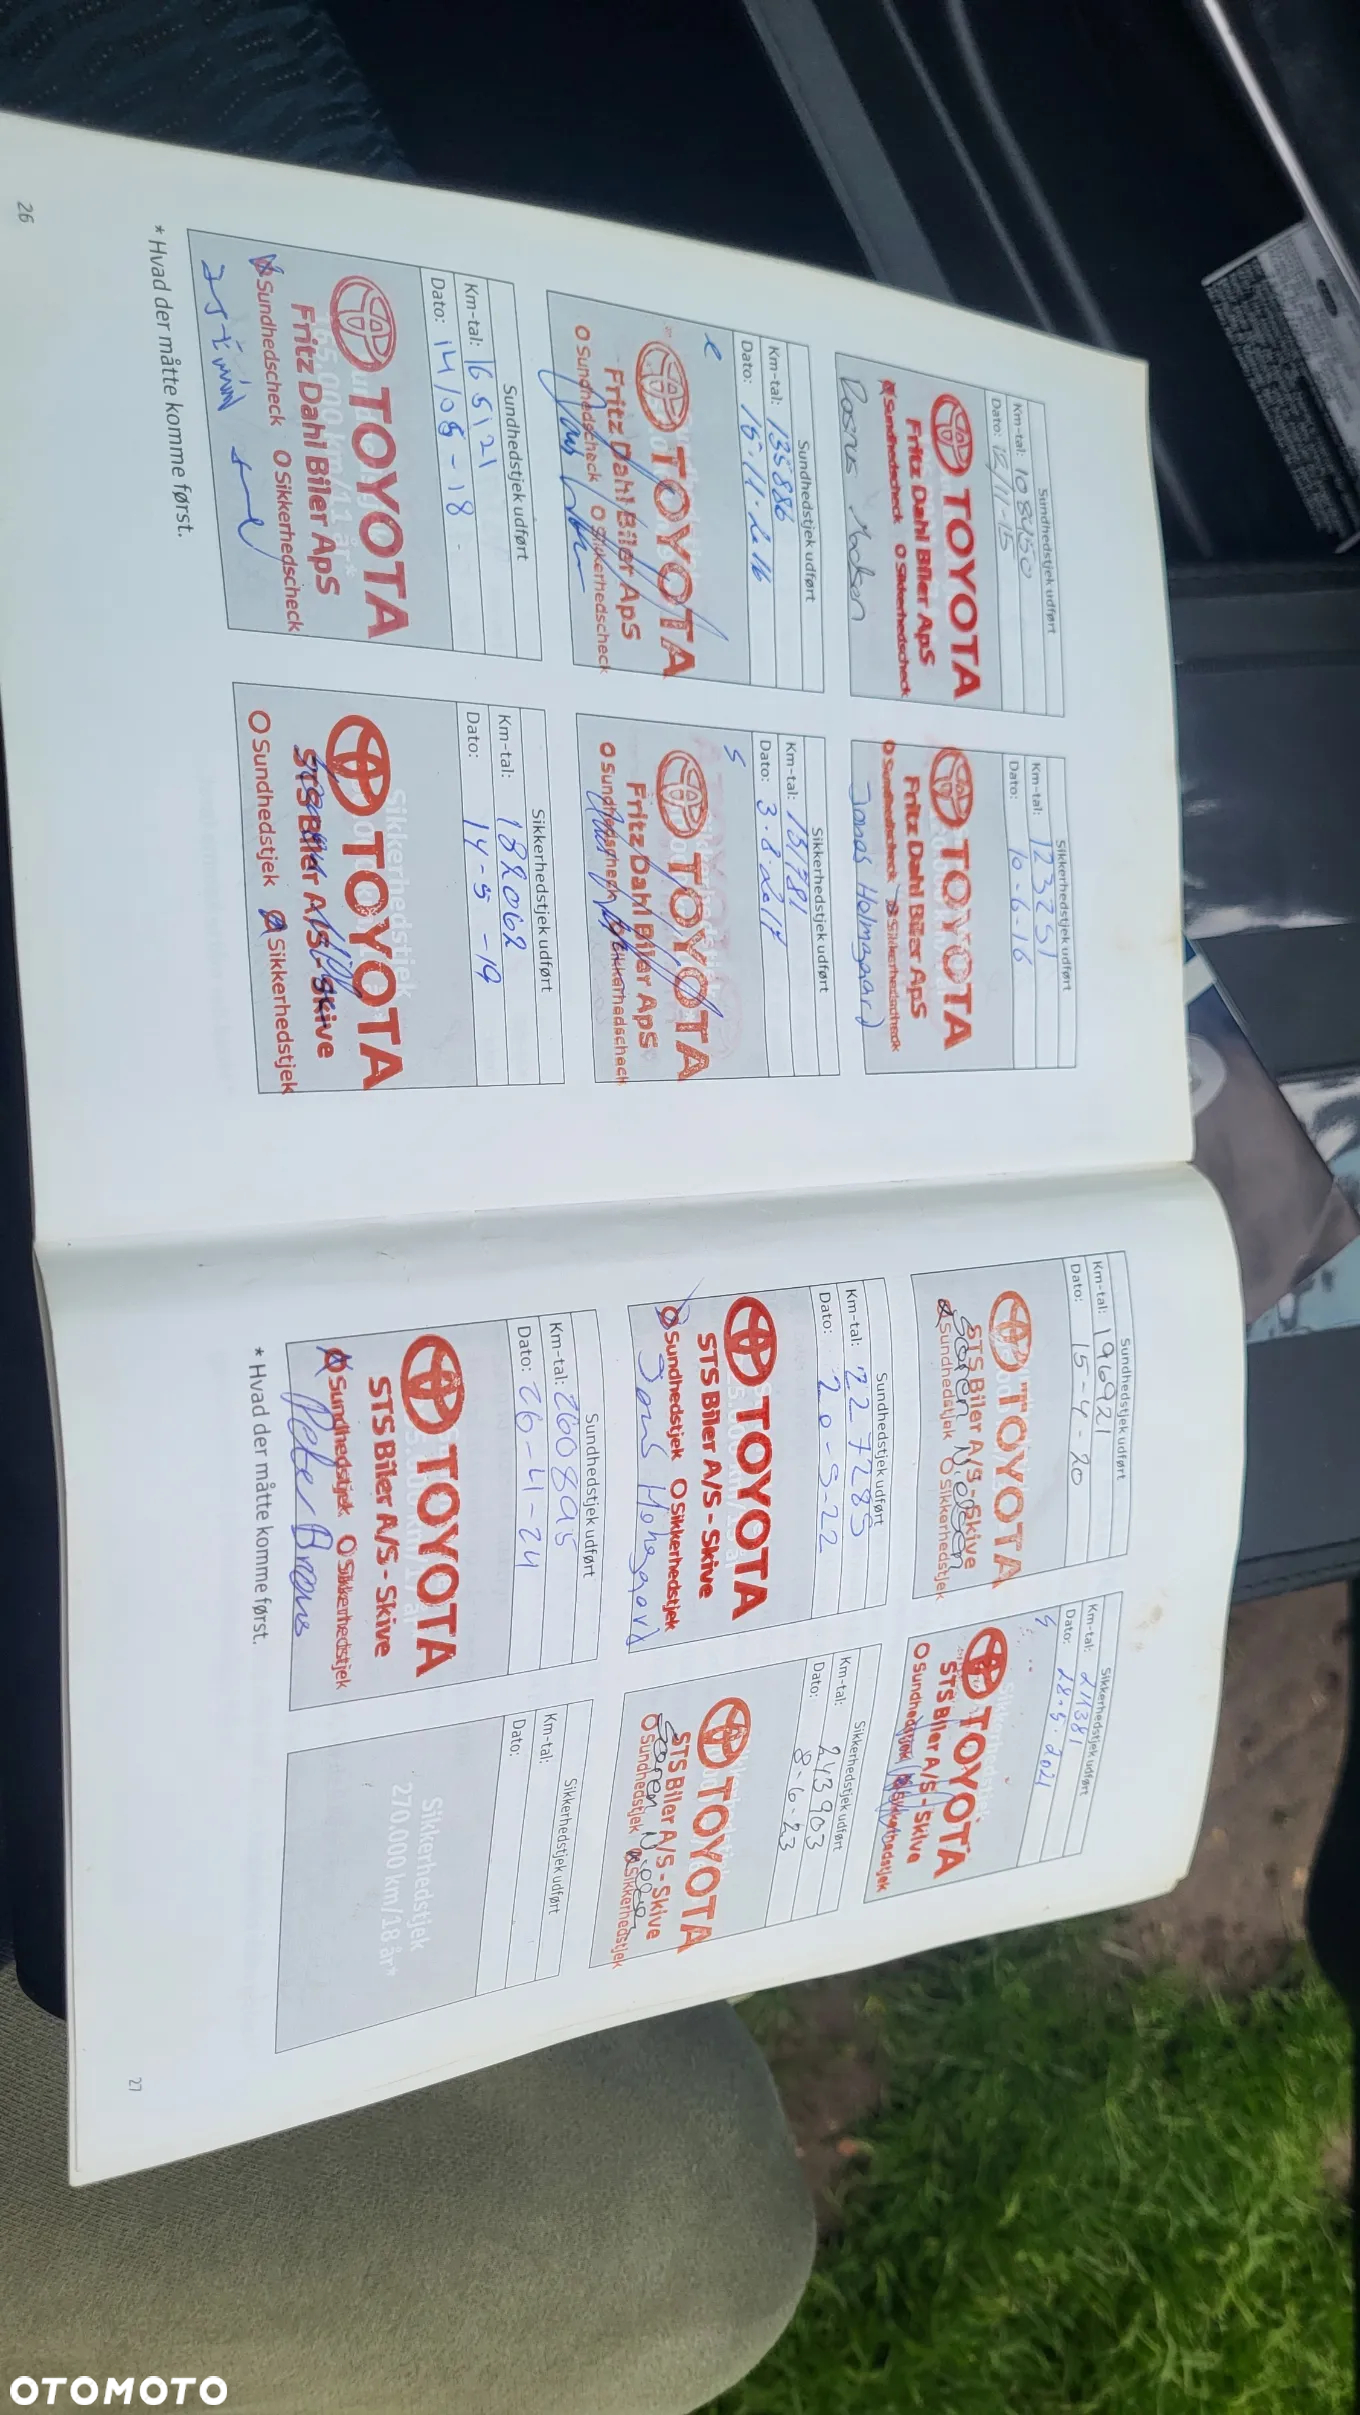 Sundhedstjek udført
Km-tal: 108450
Dato: 12/11-15
TOYOTA
Fritz Dahl Biler ApS
Sundhedscheck O Sikkerhedscheck
Sikkerhedstjek udført
Km-tal: 123251
Dato: 10-6-16
TOYOTA
Fritz Dahl Biler ApS
O Sundhedscheck Sikkerhedscheck
Jonas Holmgaard
Sundhedstjek udført
Km-tal: 135886
Dato: 15.11.2016
TOYOTA
Fritz Dahl Biler ApS
O Sundhedscheck O Sikkerhedscheck
Sikkerhedstjek udført
Km-tal: 151781
Dato: 3.8.2017
TOYOTA
Fritz Dahl Biler ApS
O Sundhedscheck Sikkerhedscheck
Sundhedstjek udført
Km-tal: 165121
Dato: 14/05-18
165.000 km/11 år*
TOYOTA
Fritz Dahl Biler ApS
Sundhedscheck O Sikkerhedscheck
Sikkerhedstjek udført
Km-tal: 182062
Dato: 14-5-19
Sikkerhedstjek
TOYOTA
STS Biler A/S - Skive
O Sundhedstjek Sikkerhedstjek
* Hvad der måtte komme først.
26
Sundhedstjek udført
Km-tal: 196921
Dato: 15-4-20
TOYOTA
STS Biler A/S - Skive
Sundhedstjek O Sikkerhedstjek
Sikkerhedstjek udført
Km-tal: 211381
Dato: 28.5.2021
TOYOTA
STS Biler A/S - Skive
O Sundhedstjek Sikkerhedstjek
Sundhedstjek udført
Km-tal: 227285
Dato: 20-5-22
TOYOTA
STS Biler A/S - Skive
Sundhedstjek O Sikkerhedstjek
Sikkerhedstjek udført
Km-tal: 243903
Dato: 8-6-23
TOYOTA
STS Biler A/S - Skive
O Sundhedstjek Sikkerhedstjek
Sundhedstjek udført
Km-tal: 260895
Dato: 26-4-24
TOYOTA
STS Biler A/S - Skive
Sundhedstjek O Sikkerhedstjek
Sikkerhedstjek udført
Km-tal:
Dato:
Sikkerhedstjek
270.000 km/18 år*
* Hvad der måtte komme først.
27
OTOMOTO